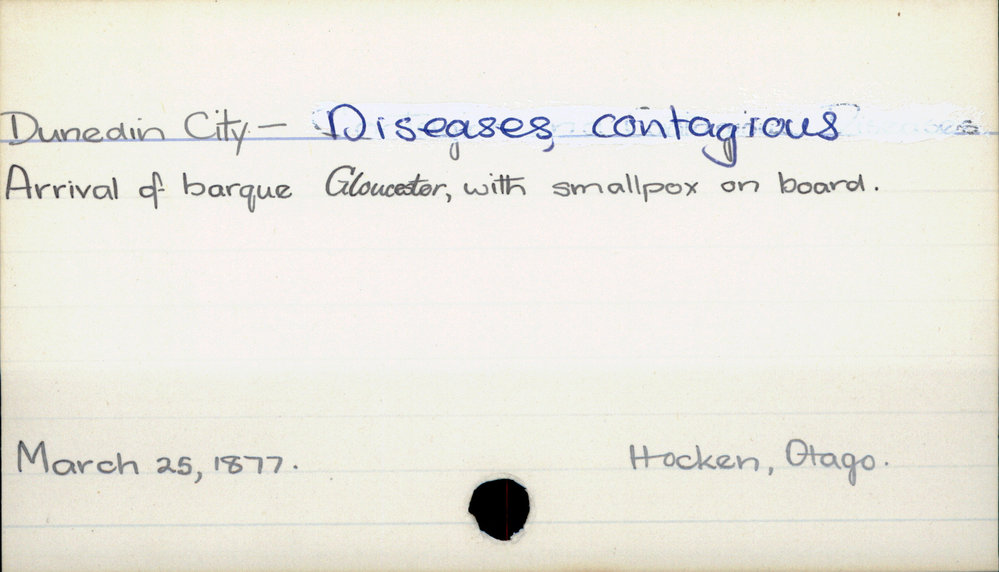 Dunedin City - Diseases, contagious
Arrival of barque Gloucester, with smallpox on board.
March 25, 1877.
Hocken, Otago.